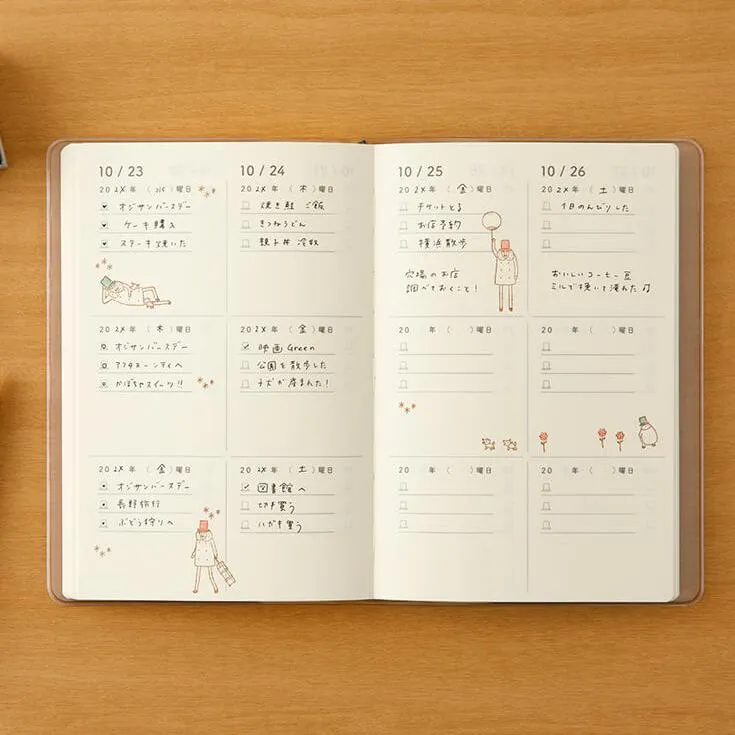 10 / 23
202X 年 (水)曜日
オジサンバースデー
ケーキ購入
ステーキ焼いた
202X 年 (木)曜日
オジサンバースデー
アフタヌーンティへ
かぼちゃスイーツ!!
202X 年 (金)曜日
オジサンバースデー
長野旅行
ぶどう狩りへ
10 / 24
202X 年 (木)曜日
焼き鮭 ご飯
きつねうどん
親子丼 冷奴
202X 年 (金)曜日
映画 Green
公園を散歩した
子犬が産まれた!
202X 年 (土)曜日
図書館へ
切手買う
ハガキ買う
10 / 25
202X 年 (金)曜日
チケットとる
お店予約
横浜散歩
穴場のお店
調べておくこと!
20 年 ( )曜日
20 年 ( )曜日
10 / 26
202X 年 (土)曜日
1日のんびりした
おいしいコーヒー豆
ミルで挽いて淹れた♫
20 年 ( )曜日
20 年 ( )曜日